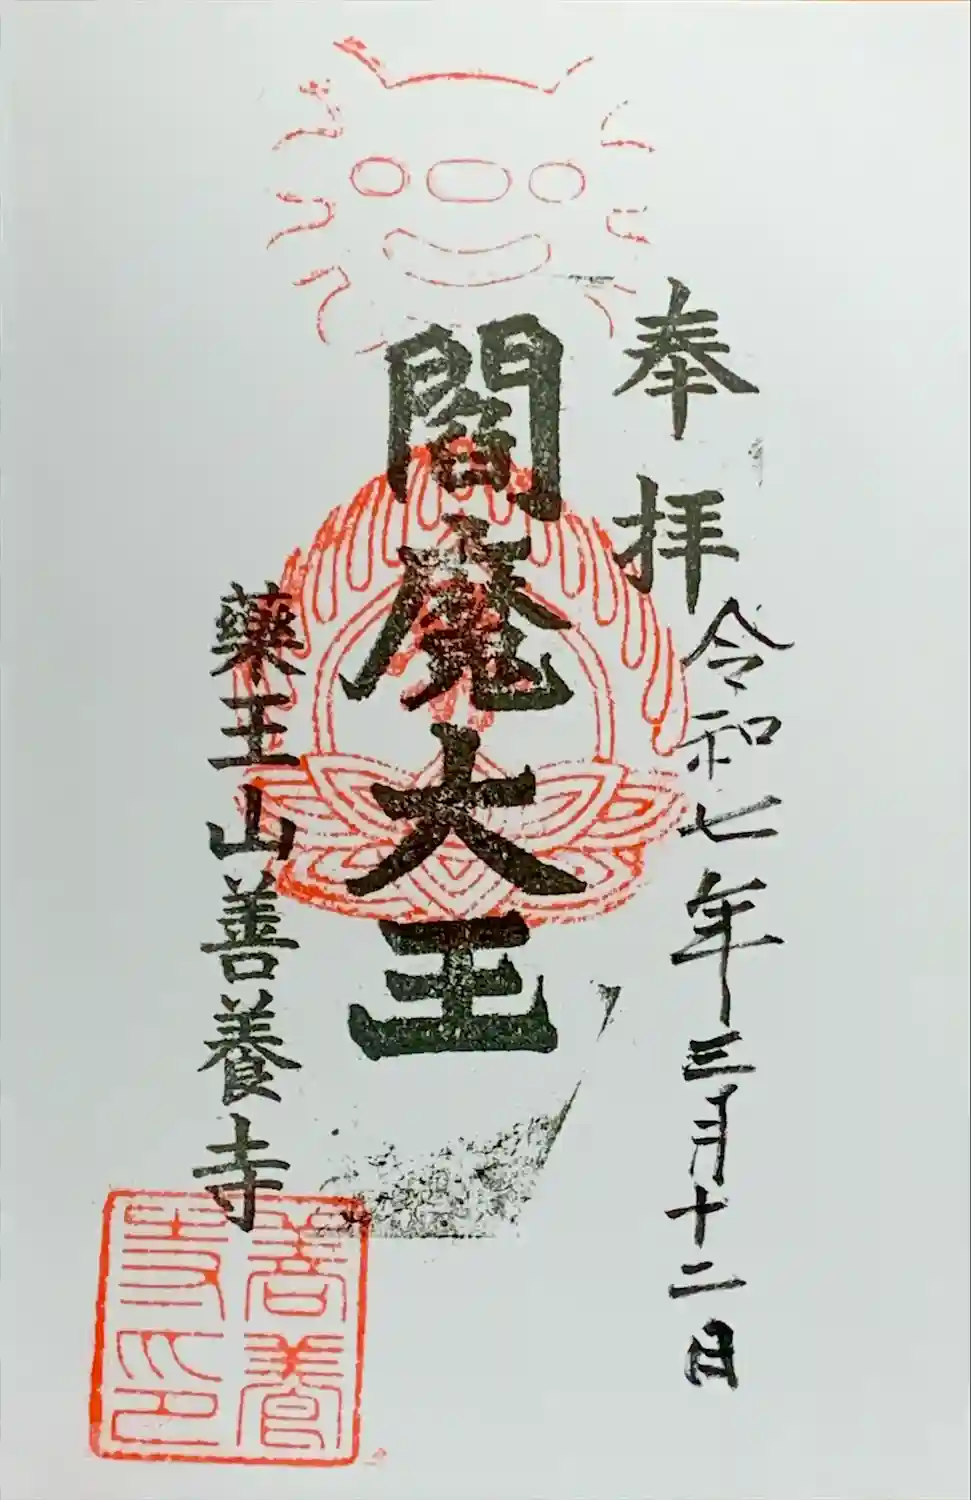 奉拝
令和七年三月十二日
閻魔大王
藥王山善養寺
善養
寺印